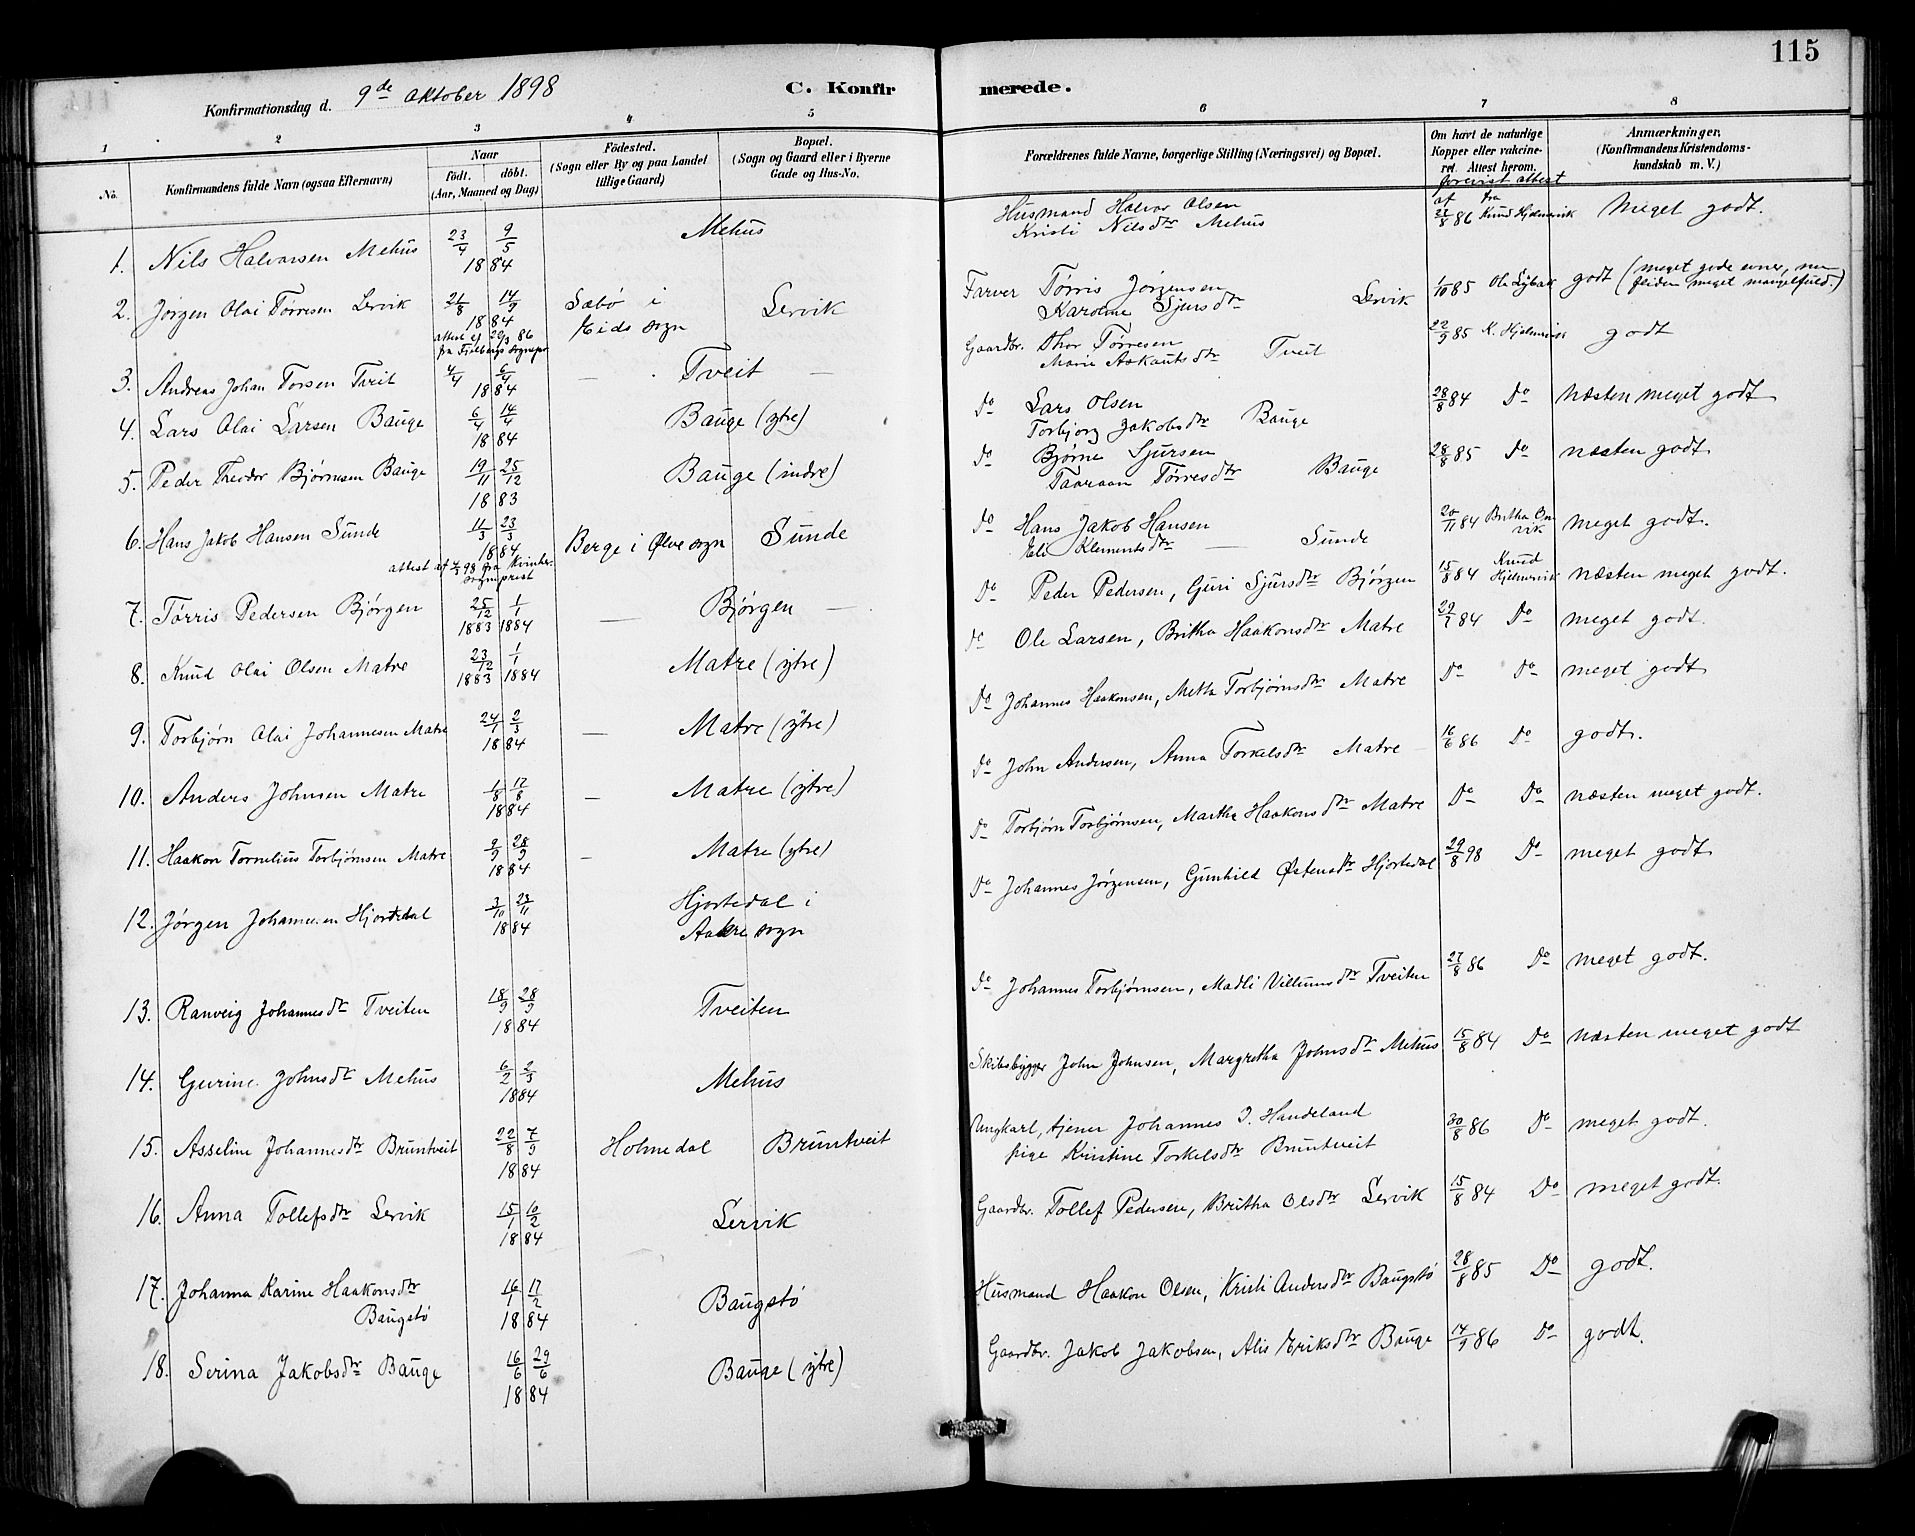 115
Konfirmationsdag d. 9de Oktober 1898
C. Konfir merede.
1 2 3 4 5 6 7 8
No.
Konfirmandens fulde Navn (ogsaa Efternavn)
Naar
födt. döbt.
(Aar, Maaned og Dag)
Födested.
(Sogn eller By og paa Landet
tillige Gaard)
Bopæl.
(Sogn og Gaard eller i Byerne
Gade og Hus-No.
Forældrenes fulde Navne, borgerlige Stilling (Næringsvei) og Bopæl.
Om havt de naturlige
Kopper eller vakcine-
ret. Attest herom.
Anmærkninger.
(Konfirmandens Kristendoms-
kundskab m. V.)
forevist attest
af fra
1. Nils Halvorsen Mehus 23/4 9/5 1884 Mehus Husmand Halvor Olsen
Kristi Nilsdtr Mehus 22/8 86 Knud Hjelmevik Meget godt.
2. Jørgen Olai Tørresen Lervik 21/8 14/9 1884 Sæbö i
Eids sogn Lervik Farver Tørris Jørgensen
Karoline Sjursdtr Lervik 1/10 85 Ole Lybak godt (meget gode evner, men
fliden meget mangelfuld.)
attest af 29/3 86
fra Fjelbergs sognepr
3. Andreas Johan Torsen Tveit 4/4 6/4 1884 — Tveit — Gaardbr. Thor Tørresen
Marie Askautsdtr Tveit 22/9 85 K. Hjelmevik godt
4. Lars Olai Larsen Bauge 6/4 14/4 1884 Bauge (ytre) Do Lars Olsen
Torbjorg Jakobsdtr Bauge 28/8 84 Do næsten meget godt
5. Peder Theodor Bjørnesen Bauge 19/11 25/12 1883 Bauge (indre) Do Bjørne Sjursen
Taaraan Tørresdtr Bauge 28/8 85 Do næsten godt
6. Hans Jakob Hansen Sunde 11/3 23/3 1884 Berge i Ølve sogn Sunde Do Hans Jakob Hansen
Eli Klementsdtr — Sunde 20/11 84 Britha meget godt.
attest af 98 fra Kvinher.
sogneprest
7. Tørris Pedersen Bjørgen 25/12 1883 1/1 1884 — Bjørgen — Do Peder Pedersen, Guri Sjursdtr Bjørgen 15/8 84 Knud
Hjelmevik næsten meget godt.
8. Knud Olai Olsen Matre 23/12 1883 1/1 1884 Matre (ytre) do Ole Larsen, Britha Haakonsdtr Matre 29/7 84 Do meget godt.
9. Torbjørn Olai Johannesen Matre 24/1 2/3 1884 — Matre (ytre) Do Johannes Haakonsen, Metta Torbjørnsdtr Matre Do Do meget godt
10. Anders Johnsen Matre 1/8 17/8 1884 — Matre (ytre) Do John Andersen, Anna Torkelsdtr Matre 16/6 86 Do godt.
11. Haakon Tornelius Torbjørnsen Matre 9/9 28/9 1884 — Matre (ytre) Do Torbjørn Torbjørnsen, Martha Haakonsdtr Matre Do Do næsten meget godt.
12. Jørgen Johannesen Hjortedal 3/10 23/11 1884 Hjortedal i
Aakre sogn Do Johannes Jørgensen, Gunhild Østensdtr Hjortedal 29/8 98 Do meget godt
13. Ranveig Johannesdtr Tveiten 18/9 28/9 1884 Tveiten Do Johannes Torbjørnsen, Madli Villumsdtr Tveiten 27/8 86 Do meget godt.
14. Gurine Johnsdtr Mehus 6/2 2/3 1884 Mehus Skibsbygger John Johnsen, Margretha Johnsdtr Mehus 15/8 84 Do næsten meget godt
15. Asseline Johannesdtr Bruntveit 22/8 7/9 1884 Holmedal Bruntveit Ungkarl, tjener Johannes J. Handeland
pige Kristine Torkelsdtr Bruntveit 30/8 86 Do meget godt.
16. Anna Tollefsdtr Lervik 15/1 10/2 1884 Lervik Gaardbr. Tollef Pedersen, Britha Olsdtr Lervik 15/8 84 Do meget godt.
17. Johanna Karine Haakonsdtr
Baugstö 16/1 17/2 1884 Baugstö Husmand Haakon Olsen, Kristi Andersdtr Baugstö 28/8 85 Do godt.
18. Serina Jakobsdtr Bauge 16/6 29/6 1884 Bauge (ytre) Gaardbr. Jakob Jakobsen, Alis Eriksdtr Bauge 14/9 86 Do godt.